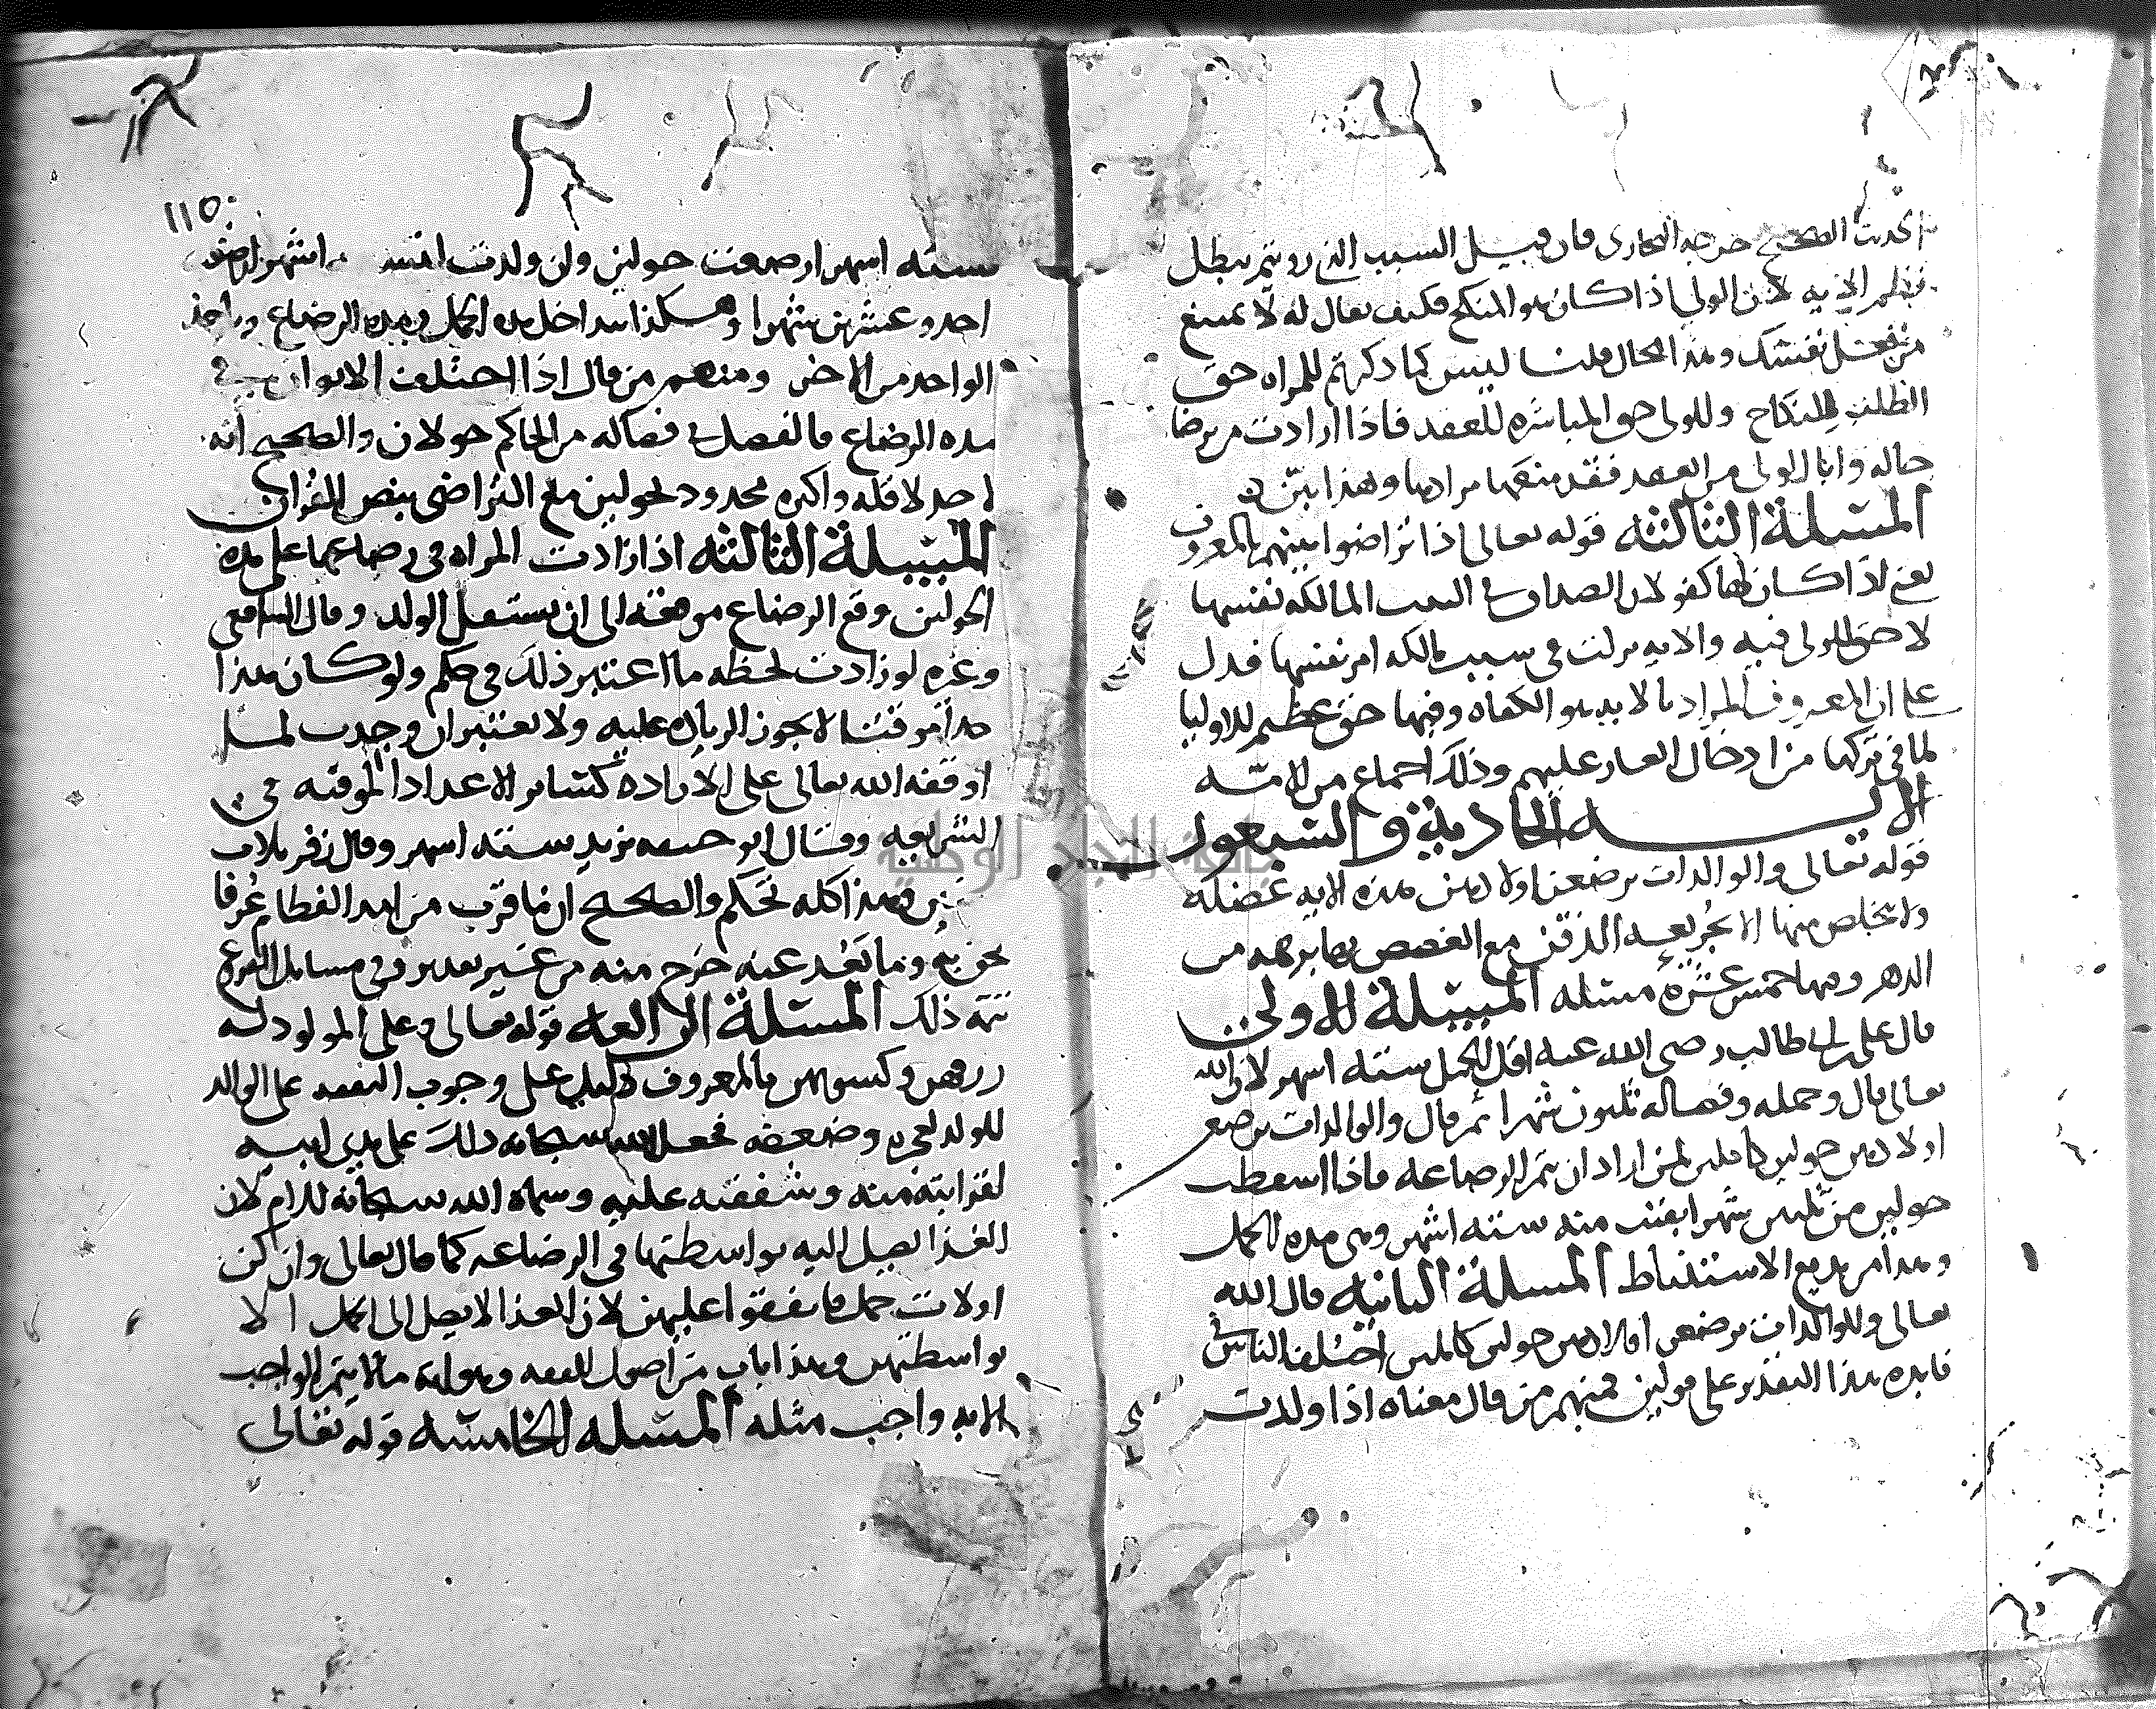 الحديث الصحيح خرجه البخارى فان قيل السبب الذى رويتم يبطل
نظم الايه لان الولي اذا كان هو المنكح فكيف يقال له لا تمنع
من فعل نفسك وهذا محال قلنا ليس كما ذكرتم للمراه حق
الطلب للنكاح وللولى حق المباشره للعقد فاذا ارادت من يرضا
حاله وابا الولى من العقد فقد منعها مرادها وهذا بيّن
المسئلة الثالثه قوله تعالى اذا تراضوا بينهم بالمعروف
يعني اذا كان لها كفو لان الصداق في الثيب المالكه نفسها
لا حق للولى فيه والايه نزلت في سبب مالكه امر نفسها فدل
على ان المعروف المراد بالايه هو الكفاه وفيها حق عظيم للاوليا
لما في تركها من ادخال العار عليهم وذلك اجماع من الامّه
الايـــه الحادية والسبعون
قوله تعالى والوالدات يرضعن اولادهن هذه الايه عضله
ولا يتخلص منها الا بجُريعه الذقن مع الغصص بها برهه من
الدهر وفيها خمس عشره مسئله المسئلة الاولى
قال علي بن ابى طالب رضى الله عنه اقل الحمل سته اسهر لان الله
تعالى قال وحمله وفصاله ثلثون شهرا ثم قال والوالدات يرضعن
اولادهن حولين كاملين لمن اراد ان يتم الرضاعه فاذا اسقطت
حولين من ثلثين شهرا بقيت منه سته اشهر وهى مده الحمل
وهذا من بديع الاستنباط المسئلة الثانيه قال الله
تعالى والوالدات يرضعن اولادهن حولين كاملين اختلف الناس في
فايده هذا التقدير على قولين فمنهم من قال معناه اذا ولدت
١١٥
لسته اسهر ارضعت حولين وان ولدت لتسعه اشهر ارضعت
احد وعشرين شهرا وهكذا تتداخل مده الحمل ومده الرضاع وياخذ
الواحد من الاخر ومنهم من قال اذا اختلف الابوان في
مده الرضاع فالفصل في فصاله من الحاكم حولان والصحيح انه
لا حد لاقله واكثره محدود بحولين مع التراضى بنص القران
المسئلة الثالثه اذا زادت المراه فى رضاعها على مده
الحولين وقع الرضاع موقعه الى ان يستقل الولد وقال الشافعي
وغيره لو زادت لحظه ما اعتبر ذلك في حكم ولو كان هذا
حدا موقتا لا تجوز الزياده عليه ولا يعتبر ان وجدت لما
اوقفه الله تعالى على الاراده كساير الاعداد الموقته فى
الشريعه وقال ابو حنيفه تزيد سته اسهر وقال زفر ثلاث
سنين وهذا كله تحكم والصحيح ان ما قرب من امد الفطام عُرفا
لحق به وما بَعُد عنه خرج منه من غير تقدير وفى مسايل الفروع
تتمّه ذلك المسئلة الرابعه قوله تعالى وعلى المولود له
رزقهن وكسوتهن بالمعروف دليل على وجوب النفقه على الوالد
للولد لعجزه وضعفه فجعل الله سبحانه ذلك على يدى ابيه
لقرابته منه وشفقته عليه وسماه الله سبحانه للام لان
الغذا يصل اليه بواسطتها فى الرضاعه كما قال تعالى وان كن
اولات حمل فانفقوا عليهن لان الغذا لا يصل الى الحمل الا
بواسطتهن وهذا باب من اصول الفقه وهو ان ما لا يتم الواجب
الا به واجب مثله المسئله الخامسه قوله تعالى